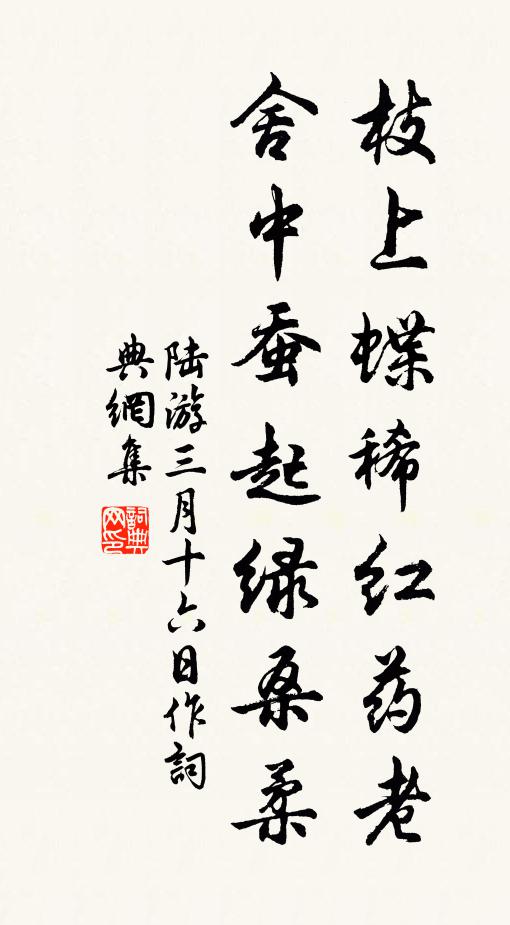 枝上蝶稀红药老
舍中蚕起绿桑柔
陆游三月十六日作詞
典網集
詞典
网印